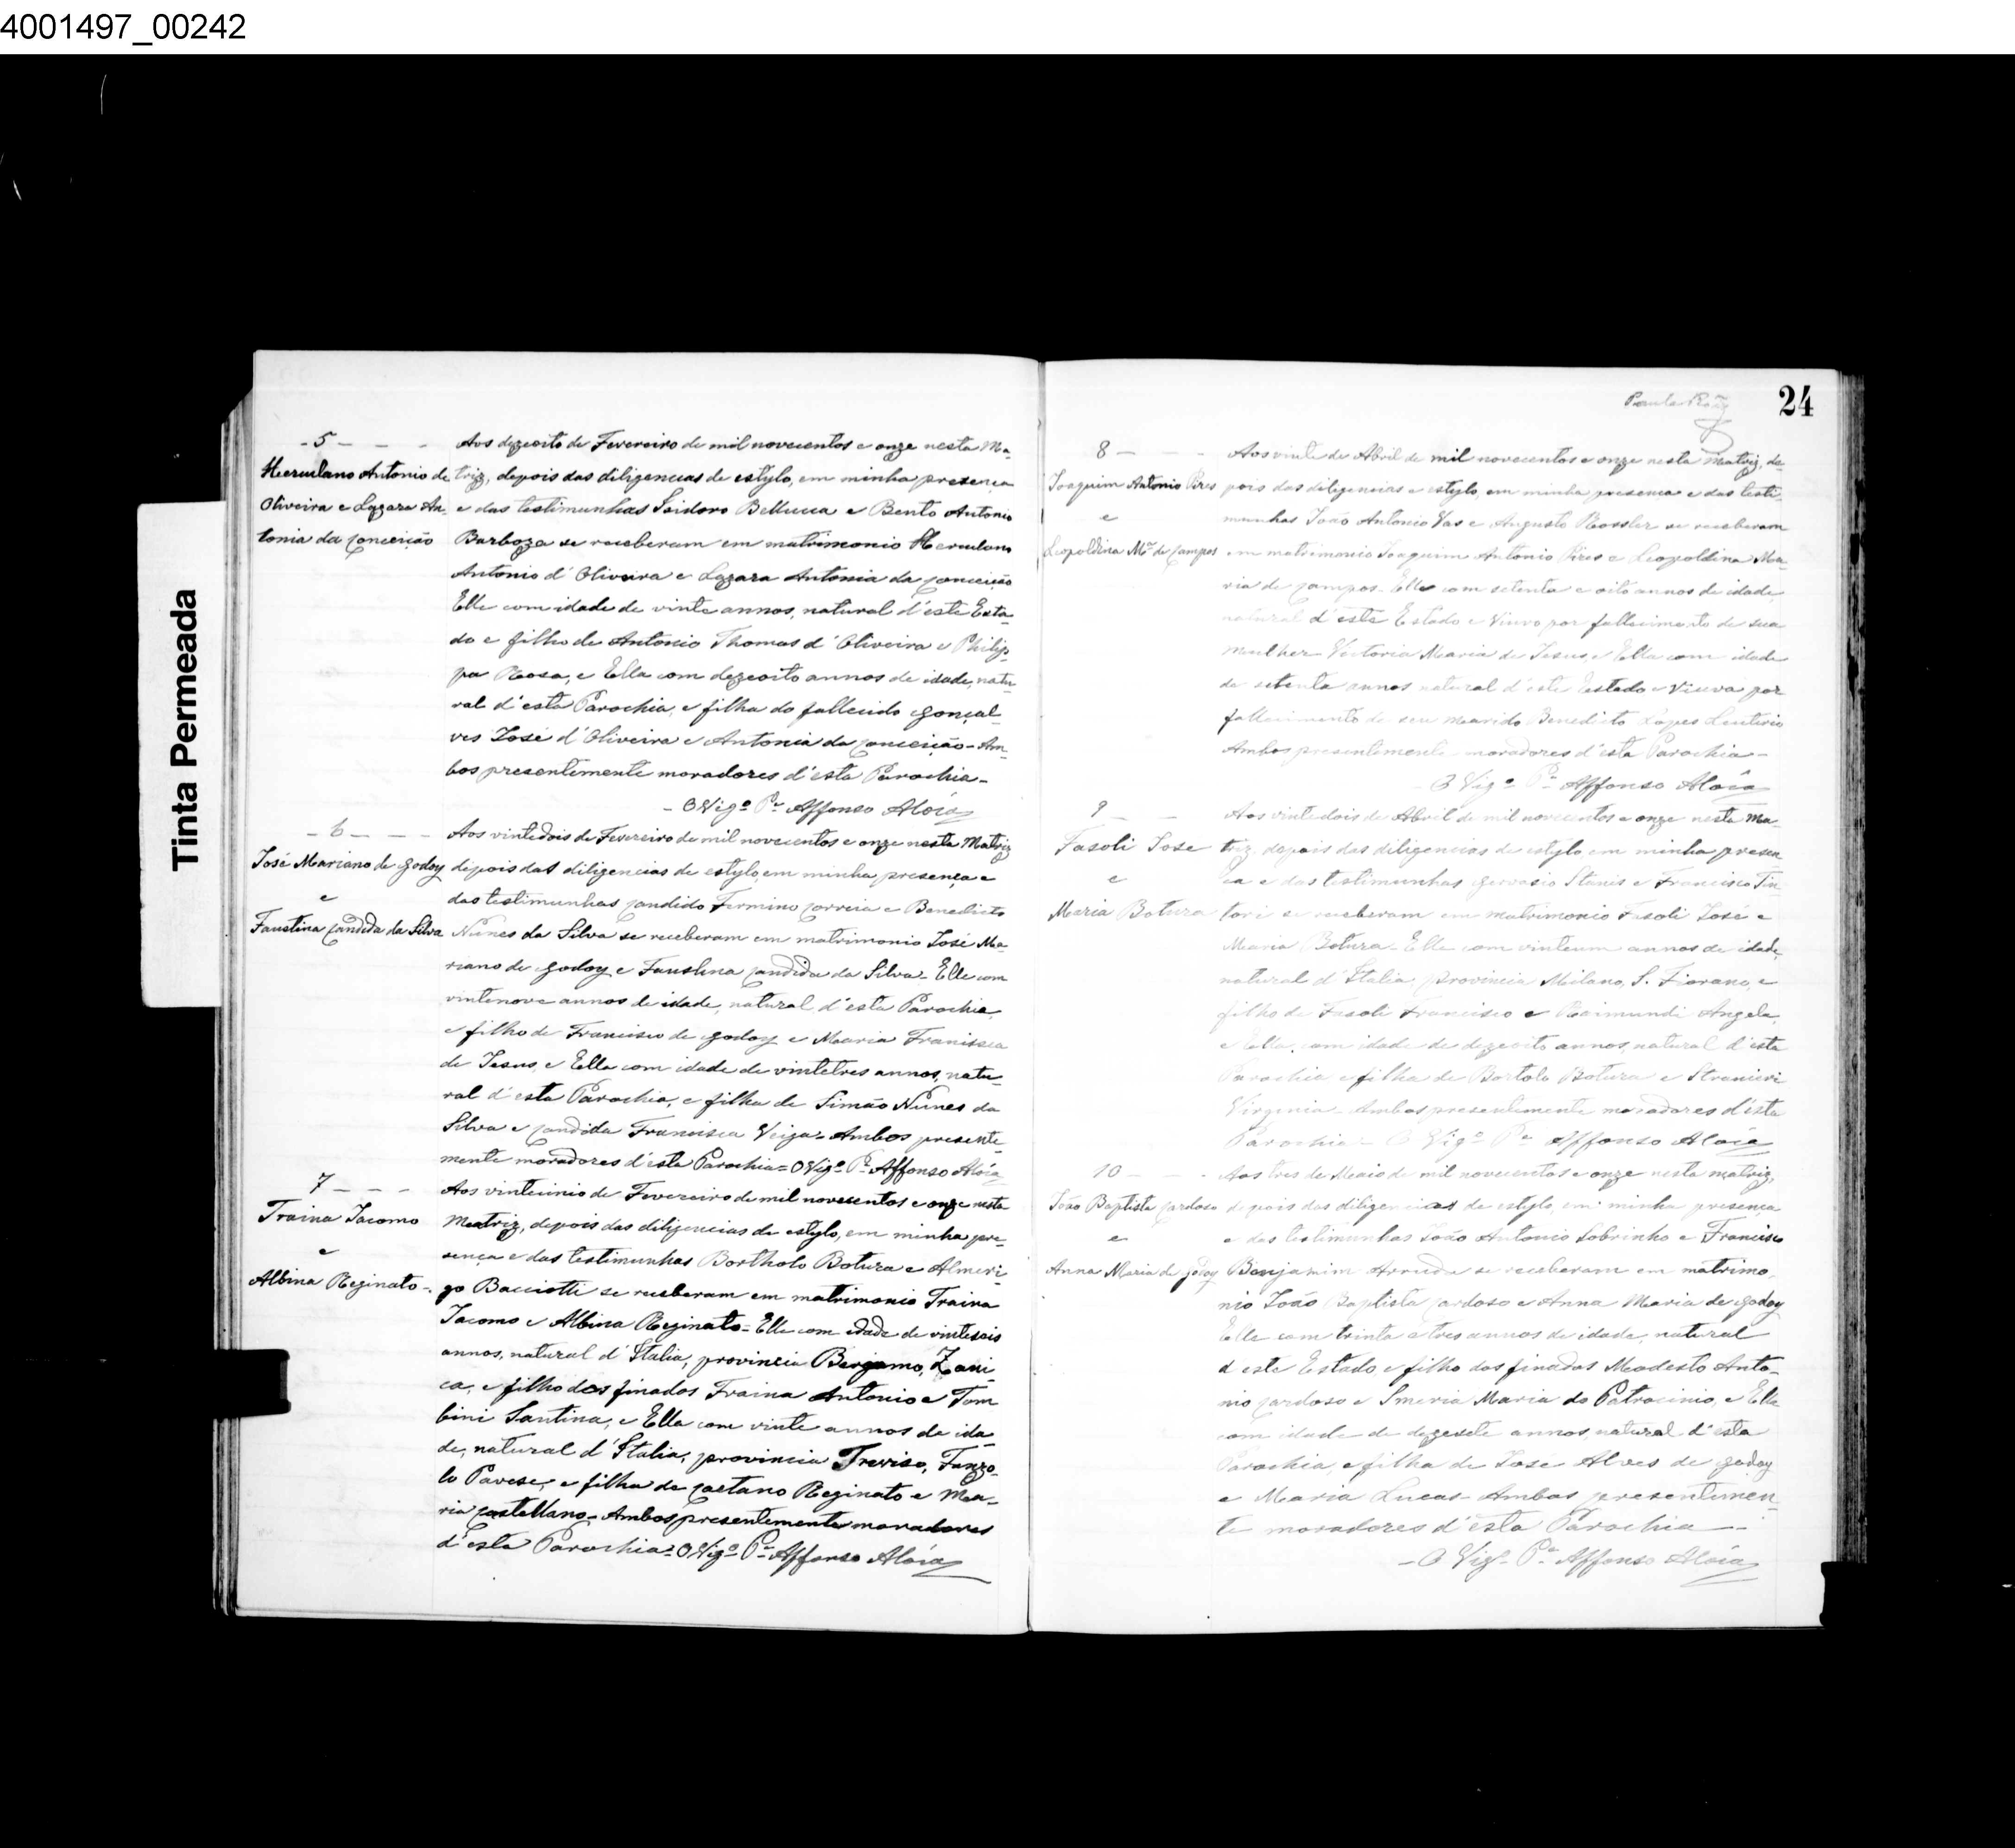 4001497_00242
Tinta Permeada
- 5 - - -
Herculano Antonio de
Oliveira e Lazara An-
tonia da Conceição
Aos dezeoito de Fevereiro de mil novecentos e onze nesta Ma-
triz, depois das diligencias de estylo, em minha presença
e das testimunhas Isidoro Bellucca e Bento Antonio
Barboza se receberam em matrimonio Herculano
Antonio d'Oliveira e Lazara Antonia da Conceição
Elle com idade de vinte annos, natural d'este Esta-
do e filho de Antonio Thomas d'Oliveira e Philip-
pa Rosa, e Ella com dezeoito annos de idade, natu-
ral d'esta Parochia, e filha do fallecido Gonçal-
ves José d'Oliveira e Antonia da Conceição - Am-
bos presentemente moradores d'esta Parochia -
- O Vigº Pe Affonso Aloía
- 6 - - -
José Mariano de Godoy
e
Faustina Candida da Silva
Aos vintedois de Fevereiro de mil novecentos e onze nesta Matriz
depois das diligencias de estylo, em minha presença e
das testimunhas Candido Firmino Correia e Benedicto
Nunes da Silva se receberam em matrimonio José Ma-
riano de Godoy e Faustina Candida da Silva - Elle com
vintenove annos de idade, natural d'esta Parochia,
e filho de Francisco de Godoy e Maria Francisca
de Jesus, e Ella com idade de vintetres annos, natu-
ral d'esta Parochia, e filha de Simão Nunes da
Silva e Candida Francisca Veiga - Ambos presente-
mente moradores d'esta Parochia = O Vigº Pe Affonso Aloía
7 - - -
Traina Jacomo
e
Albina Reginato -
Aos vintecinio de Fevereiro de mil novecentos e onze nesta
Matriz, depois das diligencias de estylo, em minha pre-
sença e das testimunhas Bortholo Botura e Almeri-
go Bacciotti se receberam em matrimonio Traina
Jacomo e Albina Reginato = Elle com idade de vinteseis
annos, natural d'Italia, provincia Bergamo, Zani-
ca, e filho dos finados Traina Antonio e Tom
bini Santina, e Ella com vinte annos de ida-
de, natural d'Italia, provincia Treviso, Fanzo-
lo Pavese, e filha de Caetano Reginato e Ma-
ria Castellano - Ambos presentemente moradores
d'esta Parochia = O Vigº Pe Affonso Aloía
24
8 - - -
Joaquim Antonio Pires
e
Leopoldina Mª de Campos
Aos vinte de Abril de mil novecentos e onze nesta Matriz, de-
pois das diligencias e estylo, em minha presença e das testi-
munhas João Antonio Vas e Augusto Rossler se receberam
em matrimonio Joaquim Antonio Pires e Leopoldina Ma-
ria de Campos - Elle com setenta e oito annos de idade,
natural d'este Estado e Viuvo por fallecimento de sua
mulher Victoria Maria de Jesus, e Ella com idade
de setenta annos natural d'este Estado e Viuva por
fallecimento de seu marido Benedicto Lopes
Ambos presentemente moradores d'esta Parochia -
O Vigº Pe Affonso Aloía
9 - - -
Fasoli Jose
e
Maria Botura
Aos vintedois de Abril de mil novecentos e onze nesta Ma-
triz, depois das diligencias de estylo, em minha presen-
ça e das testimunhas Gervasio Stanis e Francisco Tin-
tori se receberam em matrimonio Fasoli José e
Maria Botura - Elle com vinteum annos de idade,
natural d'Italia, provincia Milano, S. Fiorano, e
filho de Fasoli Francisco e Raimundi Angela,
e Ella, com idade de dezeoito annos, natural d'esta
Parochia e filha de Bortolo Botura e Stranieri
Virginia - Ambos presentemente moradores d'esta
Parochia - O Vigº Pe Affonso Aloía
10 - - -
João Baptista Cardoso
e
Anna Maria de Godoy
Aos tres de Maio de mil novecentos e onze nesta matriz,
depois das diligencias de estylo, em minha presença
e das testimunhas João Antonio Sobrinho e Francisco
Benjamim Arruda se receberam em matrimo-
nio João Baptista Cardoso e Anna Maria de Godoy
Elle com trinta e tres annos de idade, natural
d'este Estado e filho dos finados Modesto Anto-
nio Cardoso e Smeria Maria do Patrocinio, e Ella
com idade de dezesete annos natural d'esta
Parochia, e filha de Jose Alves de Godoy
e Maria Lucas - Ambos presentemen-
te moradores d'esta Parochia -
- O Vigº Pe Affonso Aloía